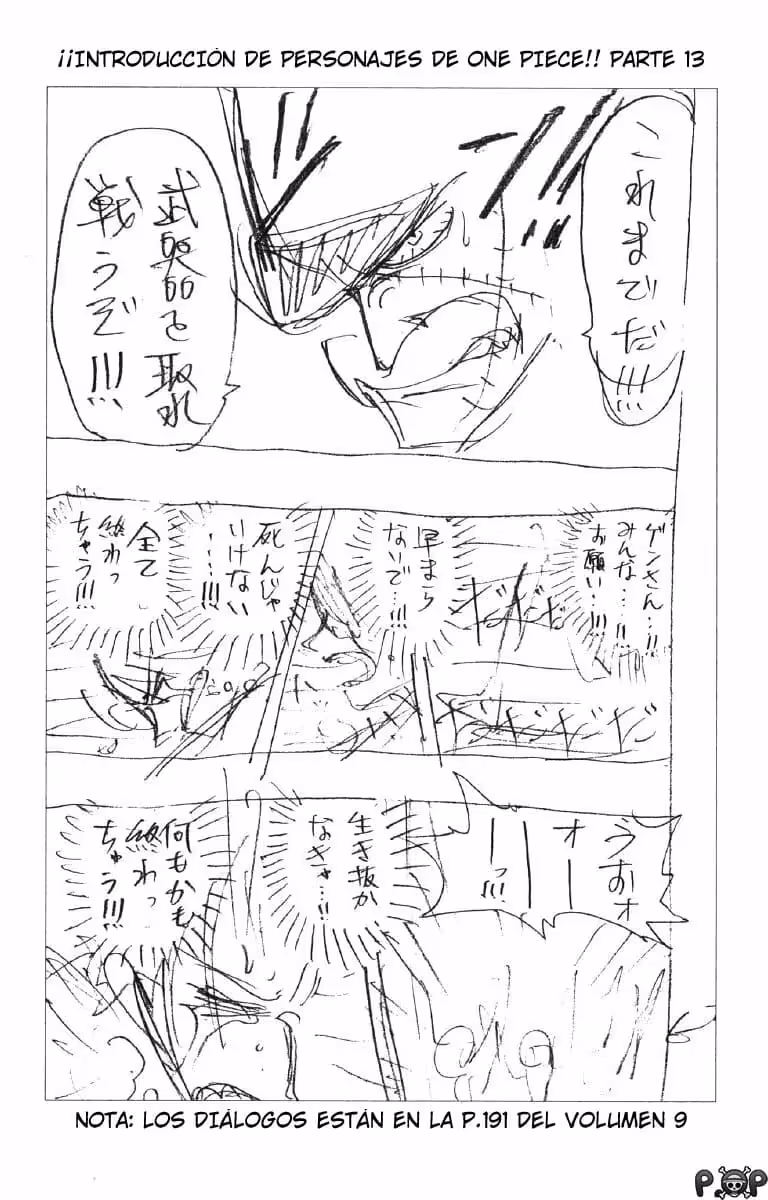 ¡¡INTRODUCCIÓN DE PERSONAJES DE ONE PIECE!! PARTE 13
これまでだ!!!
武器を取れ
戦うぞ!!!
ゲンさん…!!
みんな…!!
お願い…!!
早まら
ないで…!!
死んじゃ
いけない
…!!!
全て
終わっ
ちゃう!!!
だだだ
だだだだだ
うおォ
オー
ーーッ!!!
生き抜か
なきゃ…!!
何もかも
終わっ
ちゃう!!!
NOTA: LOS DIÁLOGOS ESTÁN EN LA P.191 DEL VOLUMEN 9
P.OP